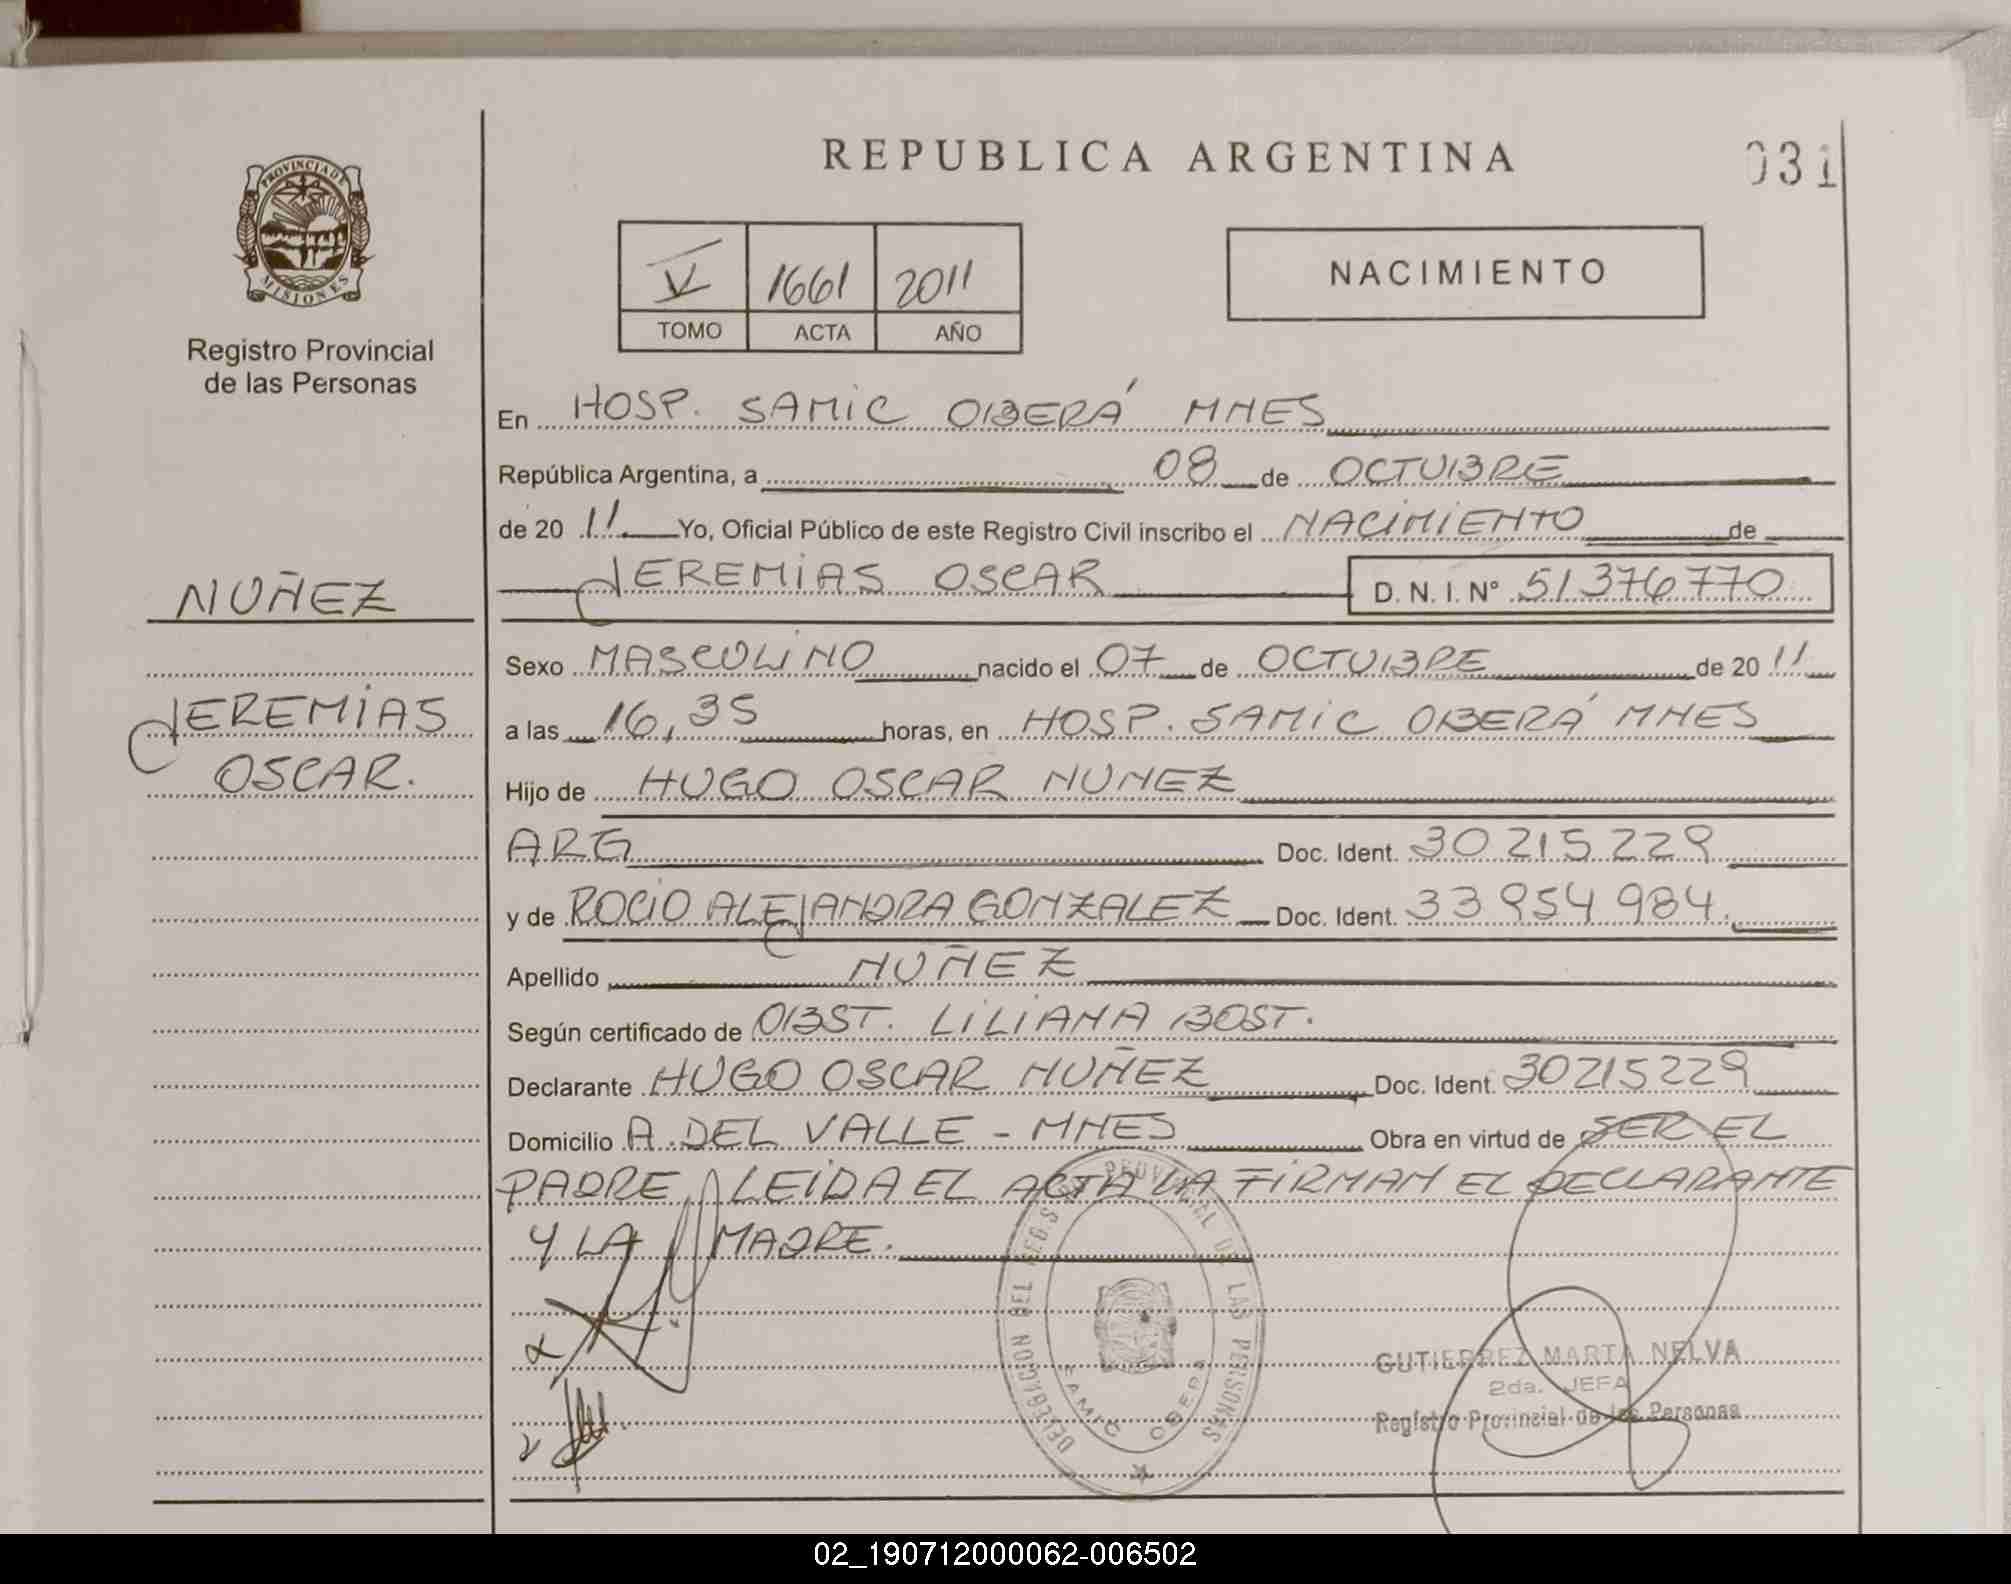 REPUBLICA ARGENTINA
031
PROVINCIA DE
MISIONES
Registro Provincial
de las Personas
V 1661 2011
TOMO ACTA AÑO
NACIMIENTO
En HOSP. SAMIC OBERÁ MNES
República Argentina, a 08 de OCTUBRE
de 20 11 Yo, Oficial Público de este Registro Civil inscribo el NACIMIENTO de
JEREMIAS OSCAR D. N. I. Nº 51376770
NUÑEZ
JEREMIAS
OSCAR.
Sexo MASCULINO nacido el 07 de OCTUBRE de 20 11
a las 16,35 horas, en HOSP. SAMIC OBERÁ MNES
Hijo de HUGO OSCAR NUNEZ
ARG Doc. Ident. 30 215 229
y de ROCIO ALEJANDRA GONZALEZ Doc. Ident. 33 954 984.
Apellido NUÑEZ
Según certificado de OBST. LILIANA BOST.
Declarante HUGO OSCAR NUÑEZ Doc. Ident. 30215229
Domicilio A. DEL VALLE - MNES Obra en virtud de SER EL
PADRE, LEIDA EL ACTA LA FIRMAN EL DECLARANTE
Y LA MADRE.
DELEGACION DEL REG. PROVINCIAL DE LAS PERSONAS
SAMIC OBERA
GUTIERREZ MARTA NELVA
2da. JEFA
Registro Provincial de las Personas
02_190712000062-006502